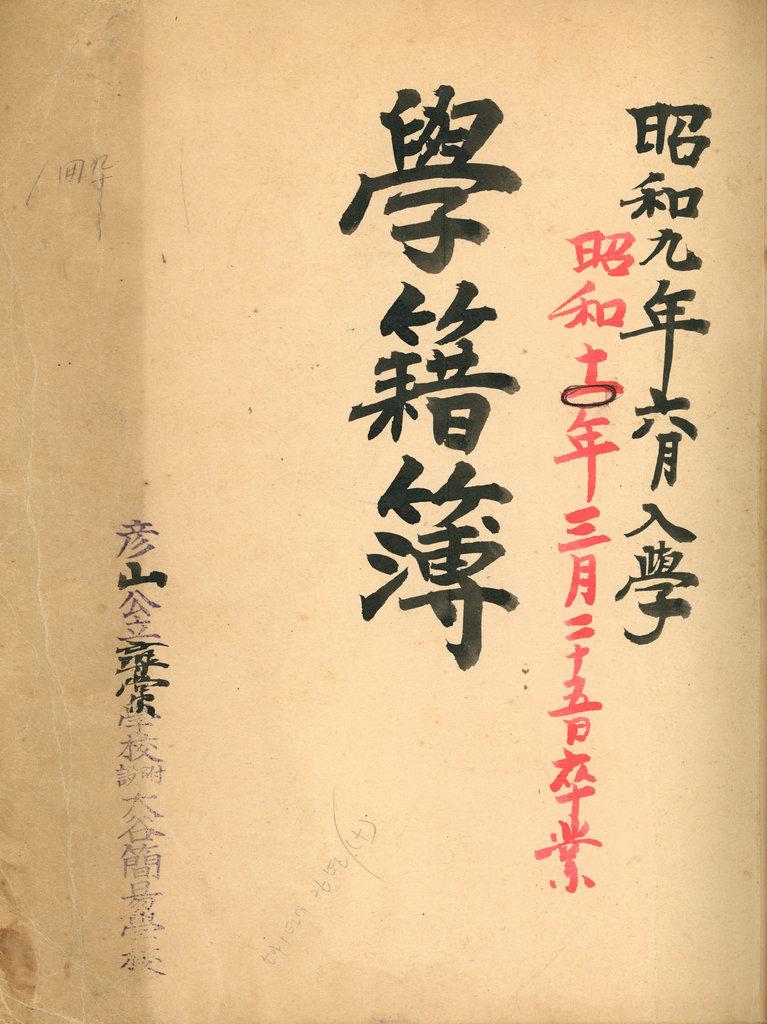 昭和九年六月入學
昭和十一年三月二十五日卒業
學籍簿
彦山公立尋常學校附設大谷簡易學校